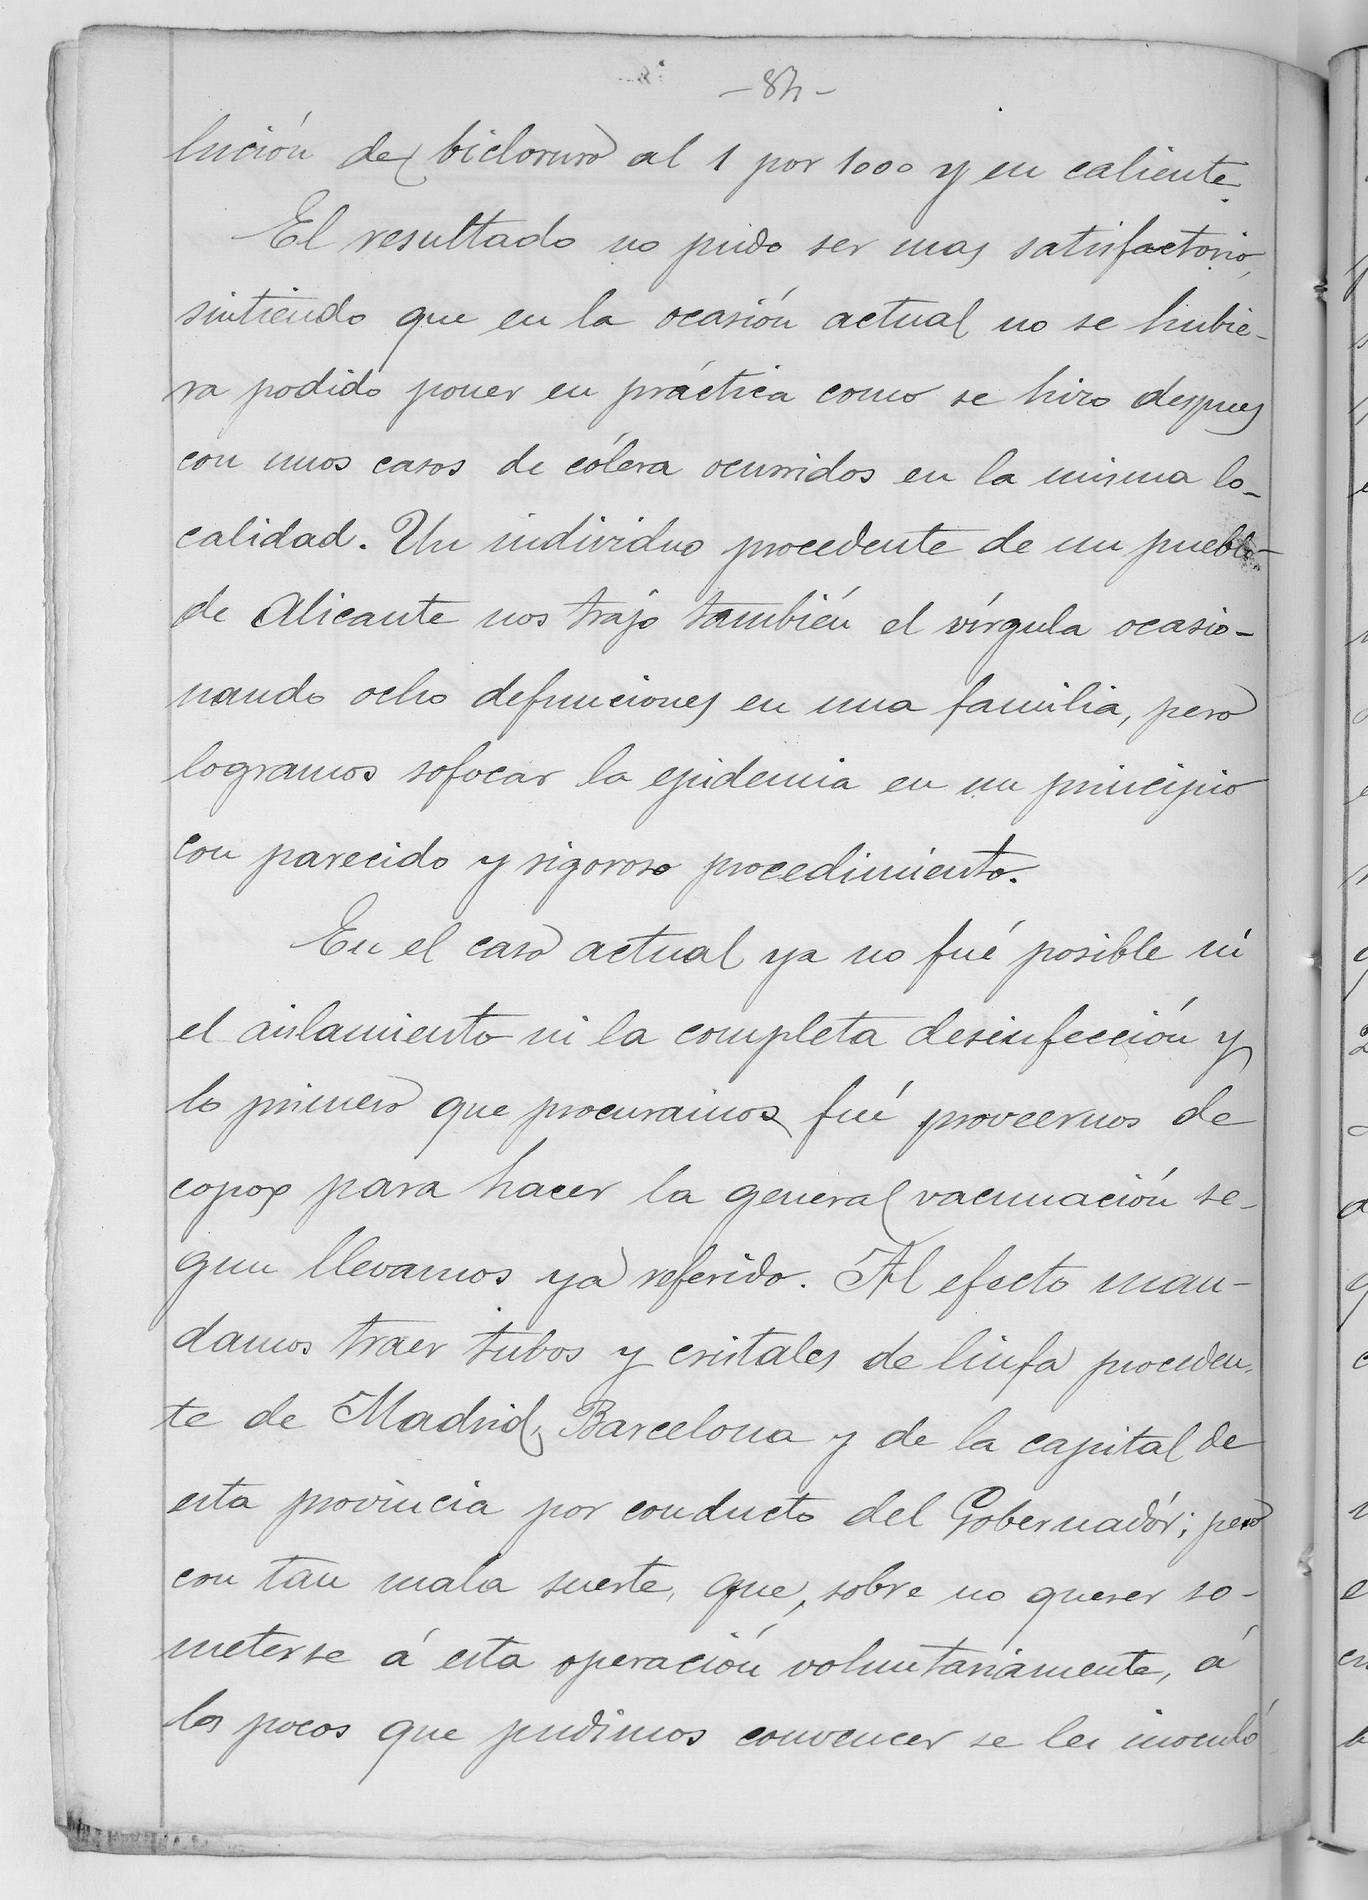 - 84 -
lución de bicloruro al 1 por 1000 y en caliente.
El resultado no pudo ser mas satisfactorio,
sintiendo que en la ocasión actual no se hubie-
ra podido poner en práctica como se hizo despues
con unos casos de cólera ocurridos en la misma lo-
calidad. Un individuo procedente de un pueblo
de Alicante nos trajo también el vírgula ocasio-
nando ocho defunciones en una familia, pero
logramos sofocar la epidemia en un principio
con parecido y rigoroso procedimiento.
En el caso actual ya no fué posible ni
el aislamiento ni la completa desinfección y
lo primero que procuramos fué proveernos de
copox para hacer la general vacunación se-
gun llevamos ya referido. Al efecto man-
damos traer tubos y cristales de linfa proceden-
te de Madrid, Barcelona y de la capital de
esta provincia por conducto del Gobernadór; pero
con tan mala suerte, que, sobre no querer so-
meterse á esta operación voluntariamente, á
los pocos que pudimos convencer se les inoculó